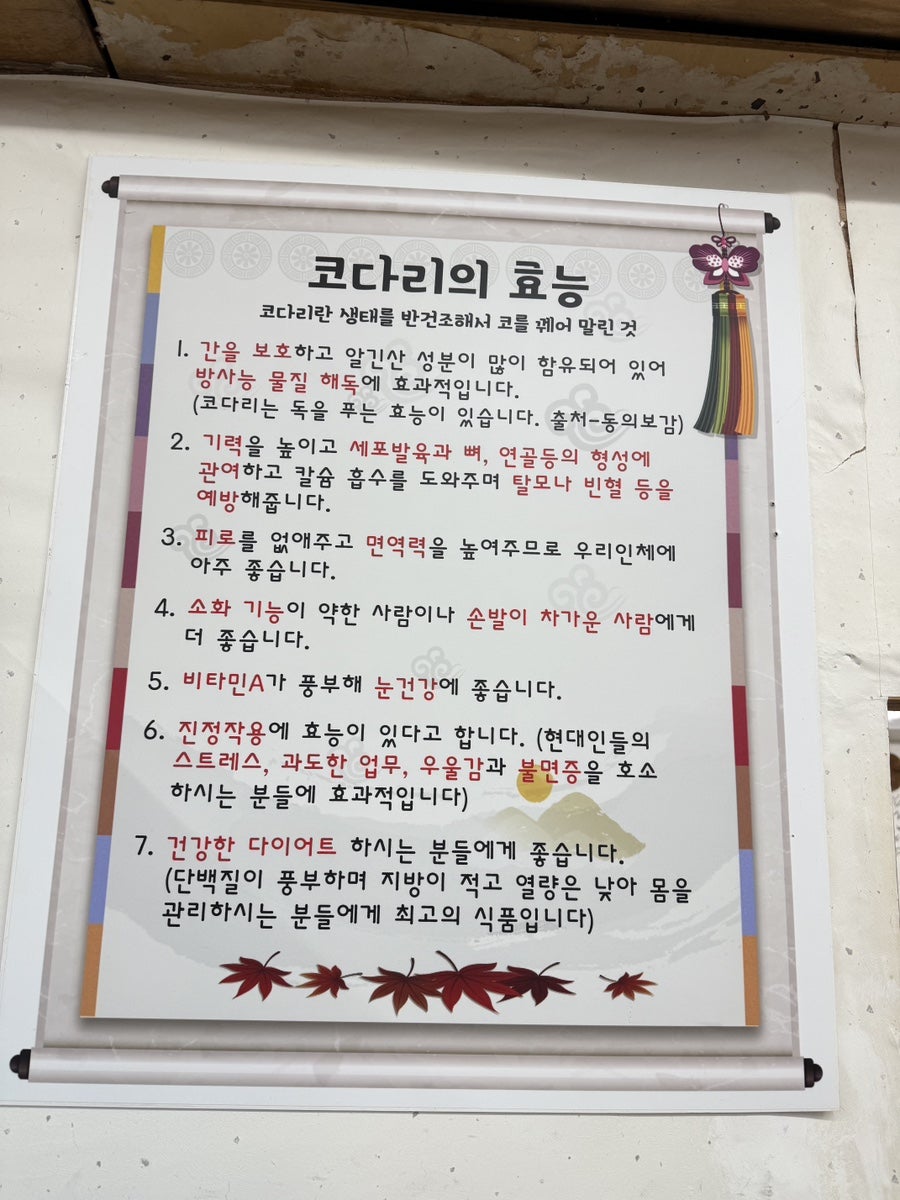 코다리의 효능
코다리란 생태를 반건조해서 코를 꿰어 말린 것
1. 간을 보호하고 알긴산 성분이 많이 함유되어 있어
방사능 물질 해독에 효과적입니다.
(코다리는 독을 푸는 효능이 있습니다. 출처-동의보감)
2. 기력을 높이고 세포발육과 뼈, 연골등의 형성에
관여하고 칼슘 흡수를 도와주며 탈모나 빈혈 등을
예방해줍니다.
3. 피로를 없애주고 면역력을 높여주므로 우리인체에
아주 좋습니다.
4. 소화 기능이 약한 사람이나 손발이 차가운 사람에게
더 좋습니다.
5. 비타민A가 풍부해 눈건강에 좋습니다.
6. 진정작용에 효능이 있다고 합니다. (현대인들의
스트레스, 과도한 업무, 우울감과 불면증을 호소
하시는 분들에 효과적입니다)
7. 건강한 다이어트 하시는 분들에게 좋습니다.
(단백질이 풍부하며 지방이 적고 열량은 낮아 몸을
관리하시는 분들에게 최고의 식품입니다)